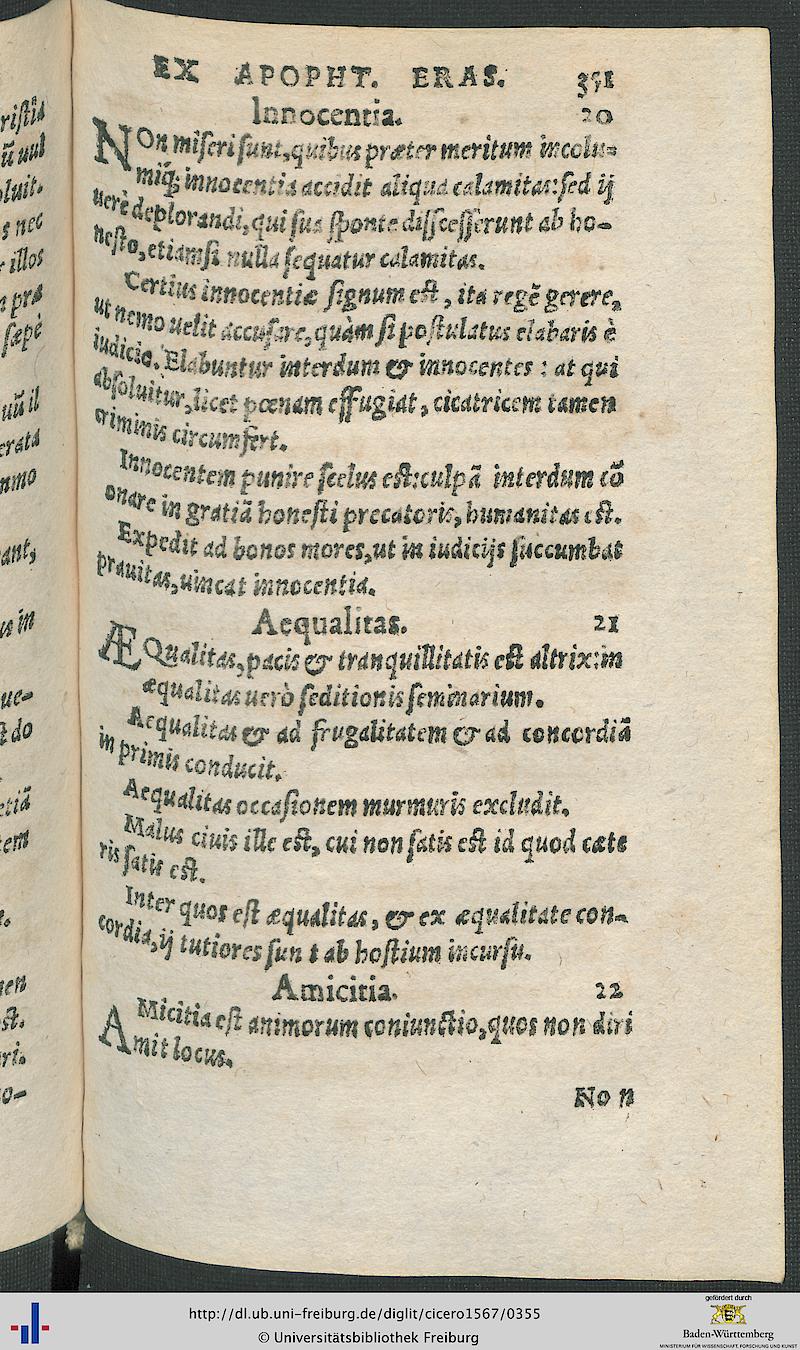 EX APOPHT. ERAS. 351
Innocentia. 20
NOn miseri sunt, quibus præter meritum incolu=
miq́; innocentia accidit aliqua calamitas: sed ij
uerè deplorandi, qui sua sponte disscesserunt ab ho-
nesto, etiamsi nulla sequatur calamitas.
Certius innocentiæ signum est, ita regẽ gerere,
ut nemo uelit accusare, quàm si postulatus elabaris è
iudicio. Elabuntur interdum & innocentes: at qui
absoluitur, licet pœnam effugiat, cicatricem tamen
criminis circumfert.
Innocentem punire scelus est: culpã interdum cõ
onare in gratiã honesti precatoris, humanitas est.
Expedit ad bonos mores, ut in iudicijs succumbat
prauitas, uincat innocentia.
Aequalitas. 21
ÆQualitas, pacis & tranquillitatis est altrix: in
æqualitas uerò seditionis seminarium.
Aequalitas & ad frugalitatem & ad concordiã
in primis conducit.
Aequalitas occasionem murmuris excludit.
Malus ciuis ille est, cui non satis est id quod cæte
ris satis est.
Inter quos est æqualitas, & ex æqualitate con-
cordia, ij tutiores sun t ab hostium incursu.
Amicitia. 22
AMicitia est animorum coniunctio, quos non diri
mit locus.
No n
ristia
ũ uul
luit.
s nec
illos
præ
sæpè
uũ il
erata
mmo
ant,
us in
ue-
st do
etiã
tem
st.
ri.
o-
http://dl.ub.uni-freiburg.de/diglit/cicero1567/0355
© Universitätsbibliothek Freiburg
gefördert durch
Baden-Württemberg
MINISTERIUM FÜR WISSENSCHAFT, FORSCHUNG UND KUNST